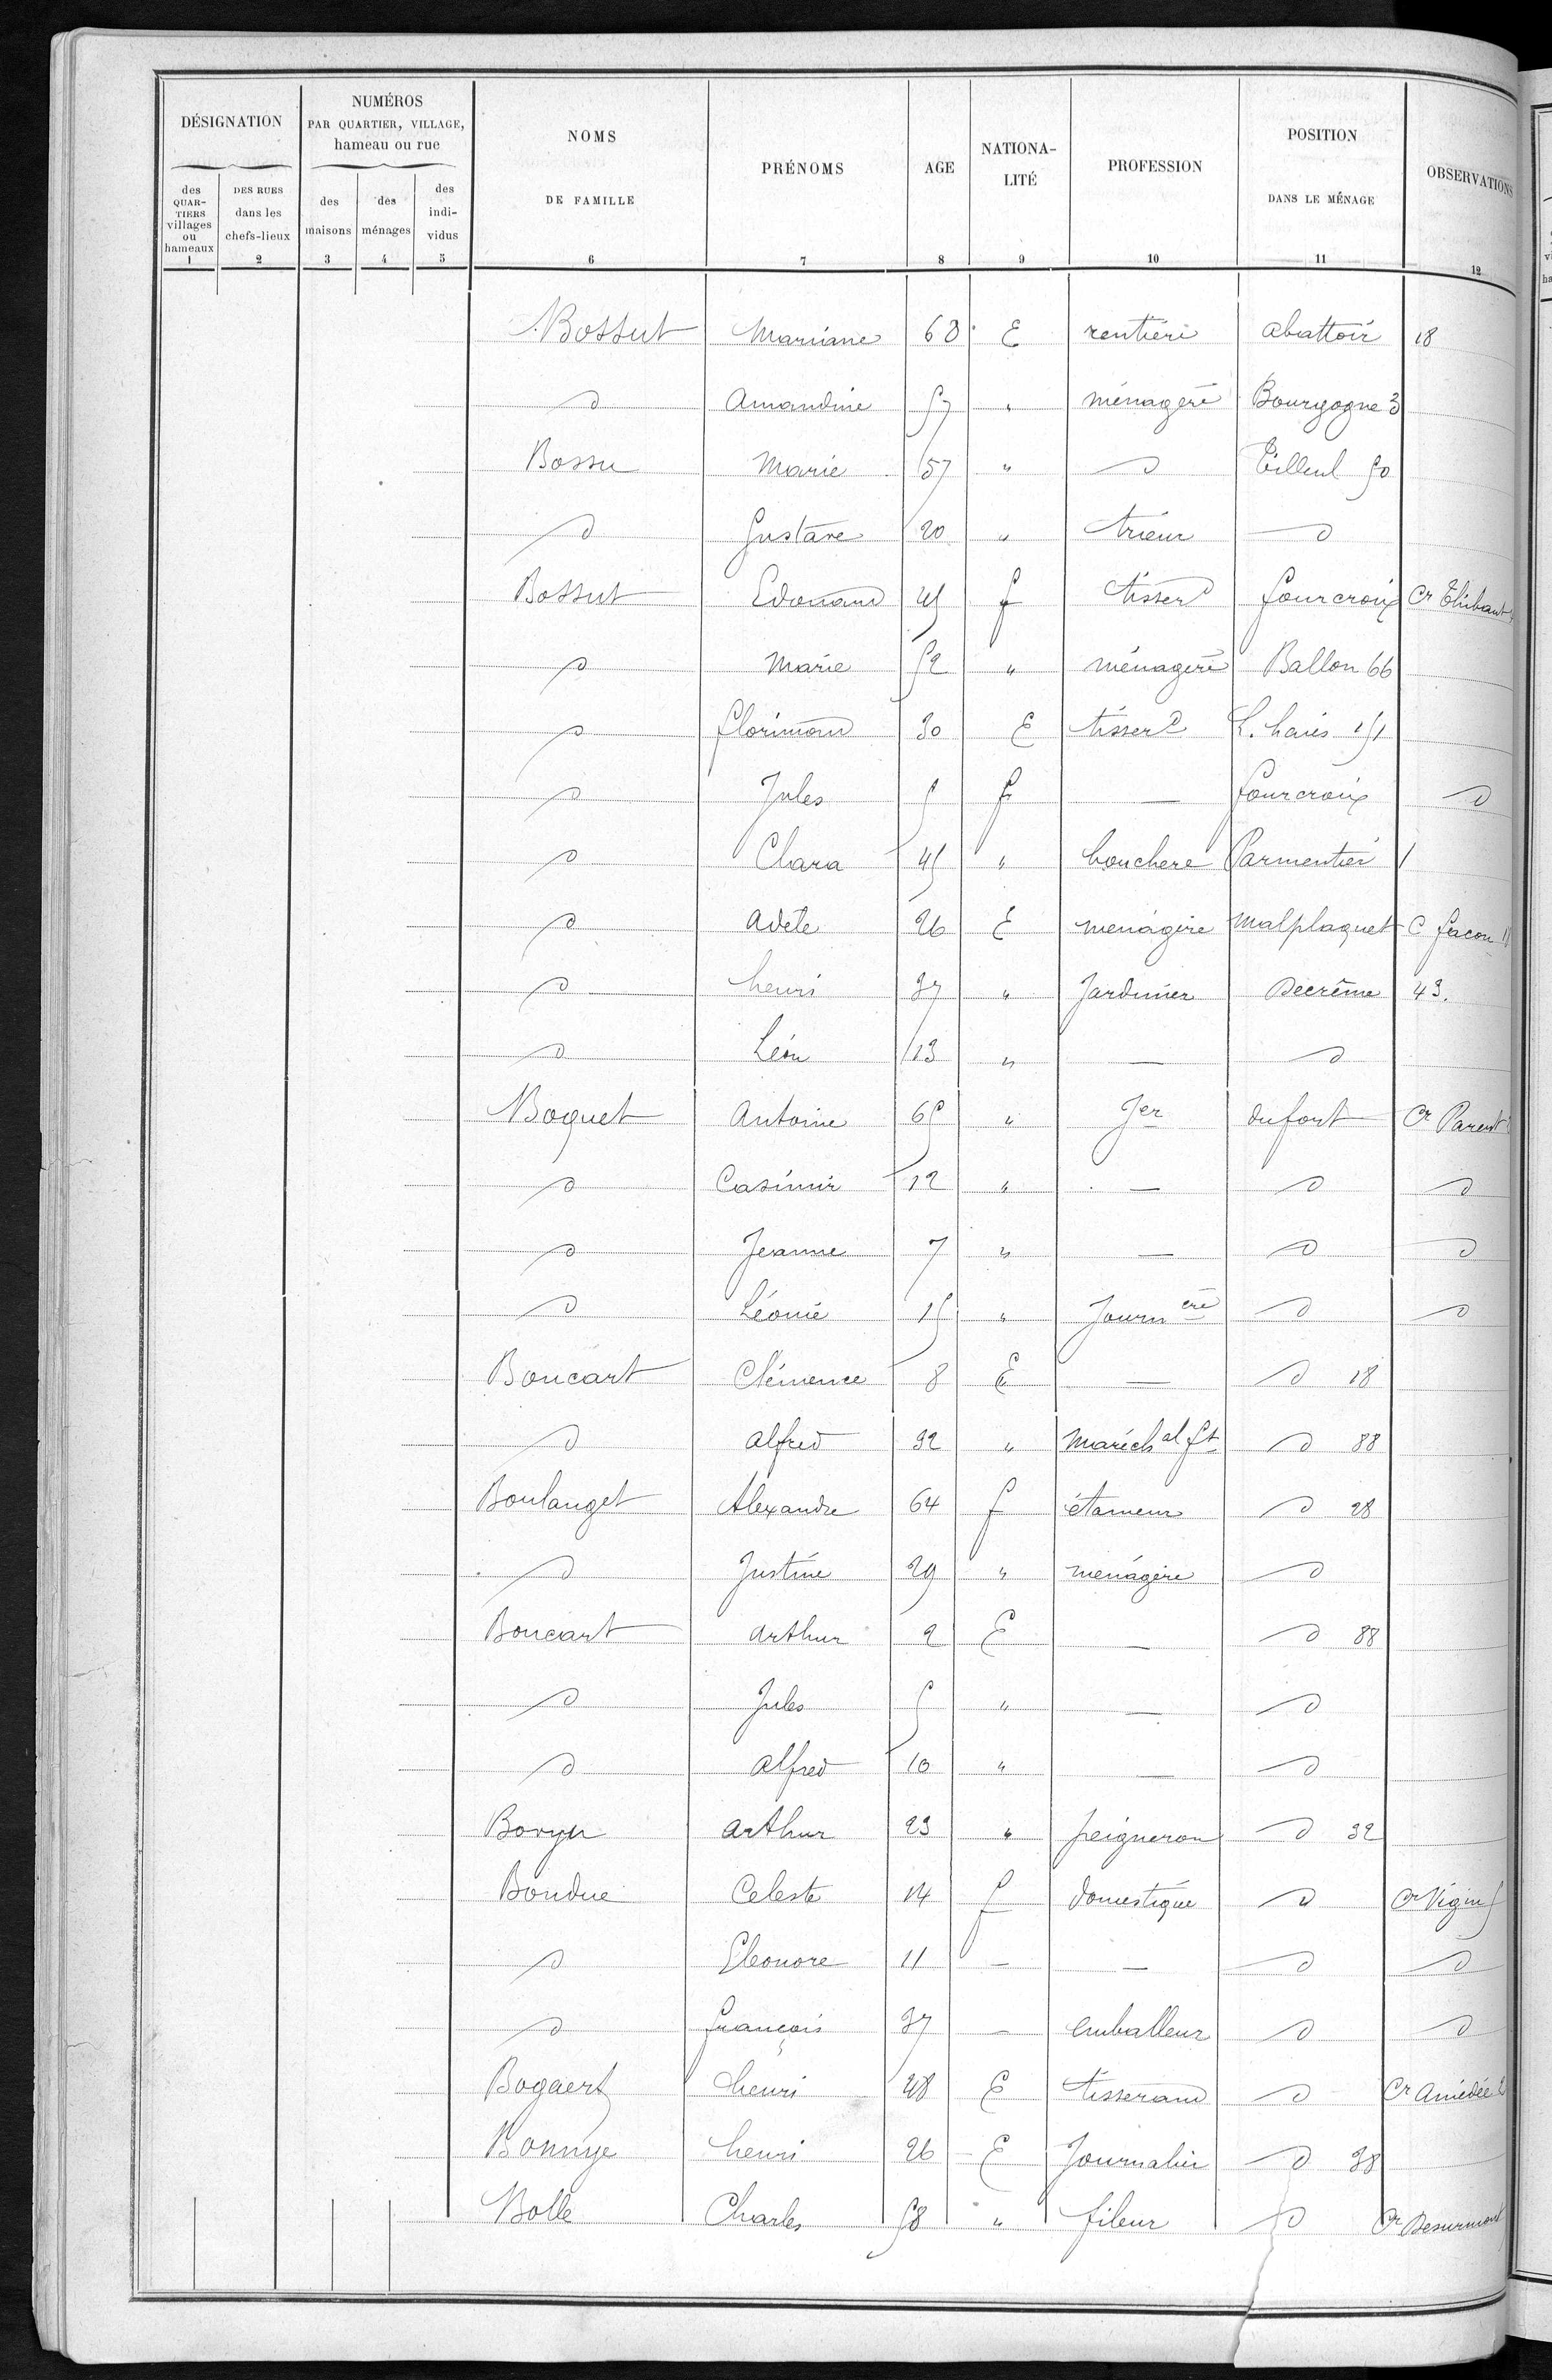 DÉSIGNATION
NUMÉROS
PAR QUARTIER, VILLAGE,
hameau ou rue
NOMS
DE FAMILLE
PRÉNOMS
AGE
NATIONA-
LITÉ
PROFESSION
POSITION
DANS LE MÉNAGE
OBSERVATIONS
des
QUAR-
TIERS
villages
ou
hameaux
DES RUES
dans les
chefs-lieux
des
maisons
des
ménages
des
indi-
vidus
1 2 3 4 5 6 7 8 9 10 11 12
Bossut Mariane 68 E rentière abattoir 18
d Amandine 57 " ménagère Bourgogne 3
Bossu Marie 57 " d Tilleul 50
d Gustave 20 " trieur d
Bossut Edouard 45 f tisserd fourcroix Cr Thibaut
d Marie 52 " ménagère Ballon 66
d florimond 30 E tisserd L. haies 151
d Jules 5 f — fourcroix d
d Clara 45 " bouchere Parmentier 1
d Adele 26 E menágère Malplaquet C facon
d henri 37 " Jardinier Decrême 43.
d Léon 13 " — d
Boquet Antoine 65 " Jer du fort Cr Parent
d Casimir 12 " — d d
d Jeanne 7 " — d d
d Léonie 15 " Journère d d
Boucart Clémence 8 E — d 18
d alfred 32 " Maréchal ft d 88
Boulanget Alexandre 64 f étameur d 28
d Justine 29 " menágère d
Boucart arthur 2 E — d 88
d Jules 5 " — d
d alfred 10 " — d
Boryn arthur 23 " peigneron d 32
Bondue Celeste 14 f domestique d Cr Vigin 5
d Eleonore 11 — — d d
d françois 37 — emballeur d d
Bogaert henri 48 E tisserand d Cr Amédée 2
Bonnye henri 26 E Journalier d 38
Bolle Charles 58 " fileur d Cr Desurmont